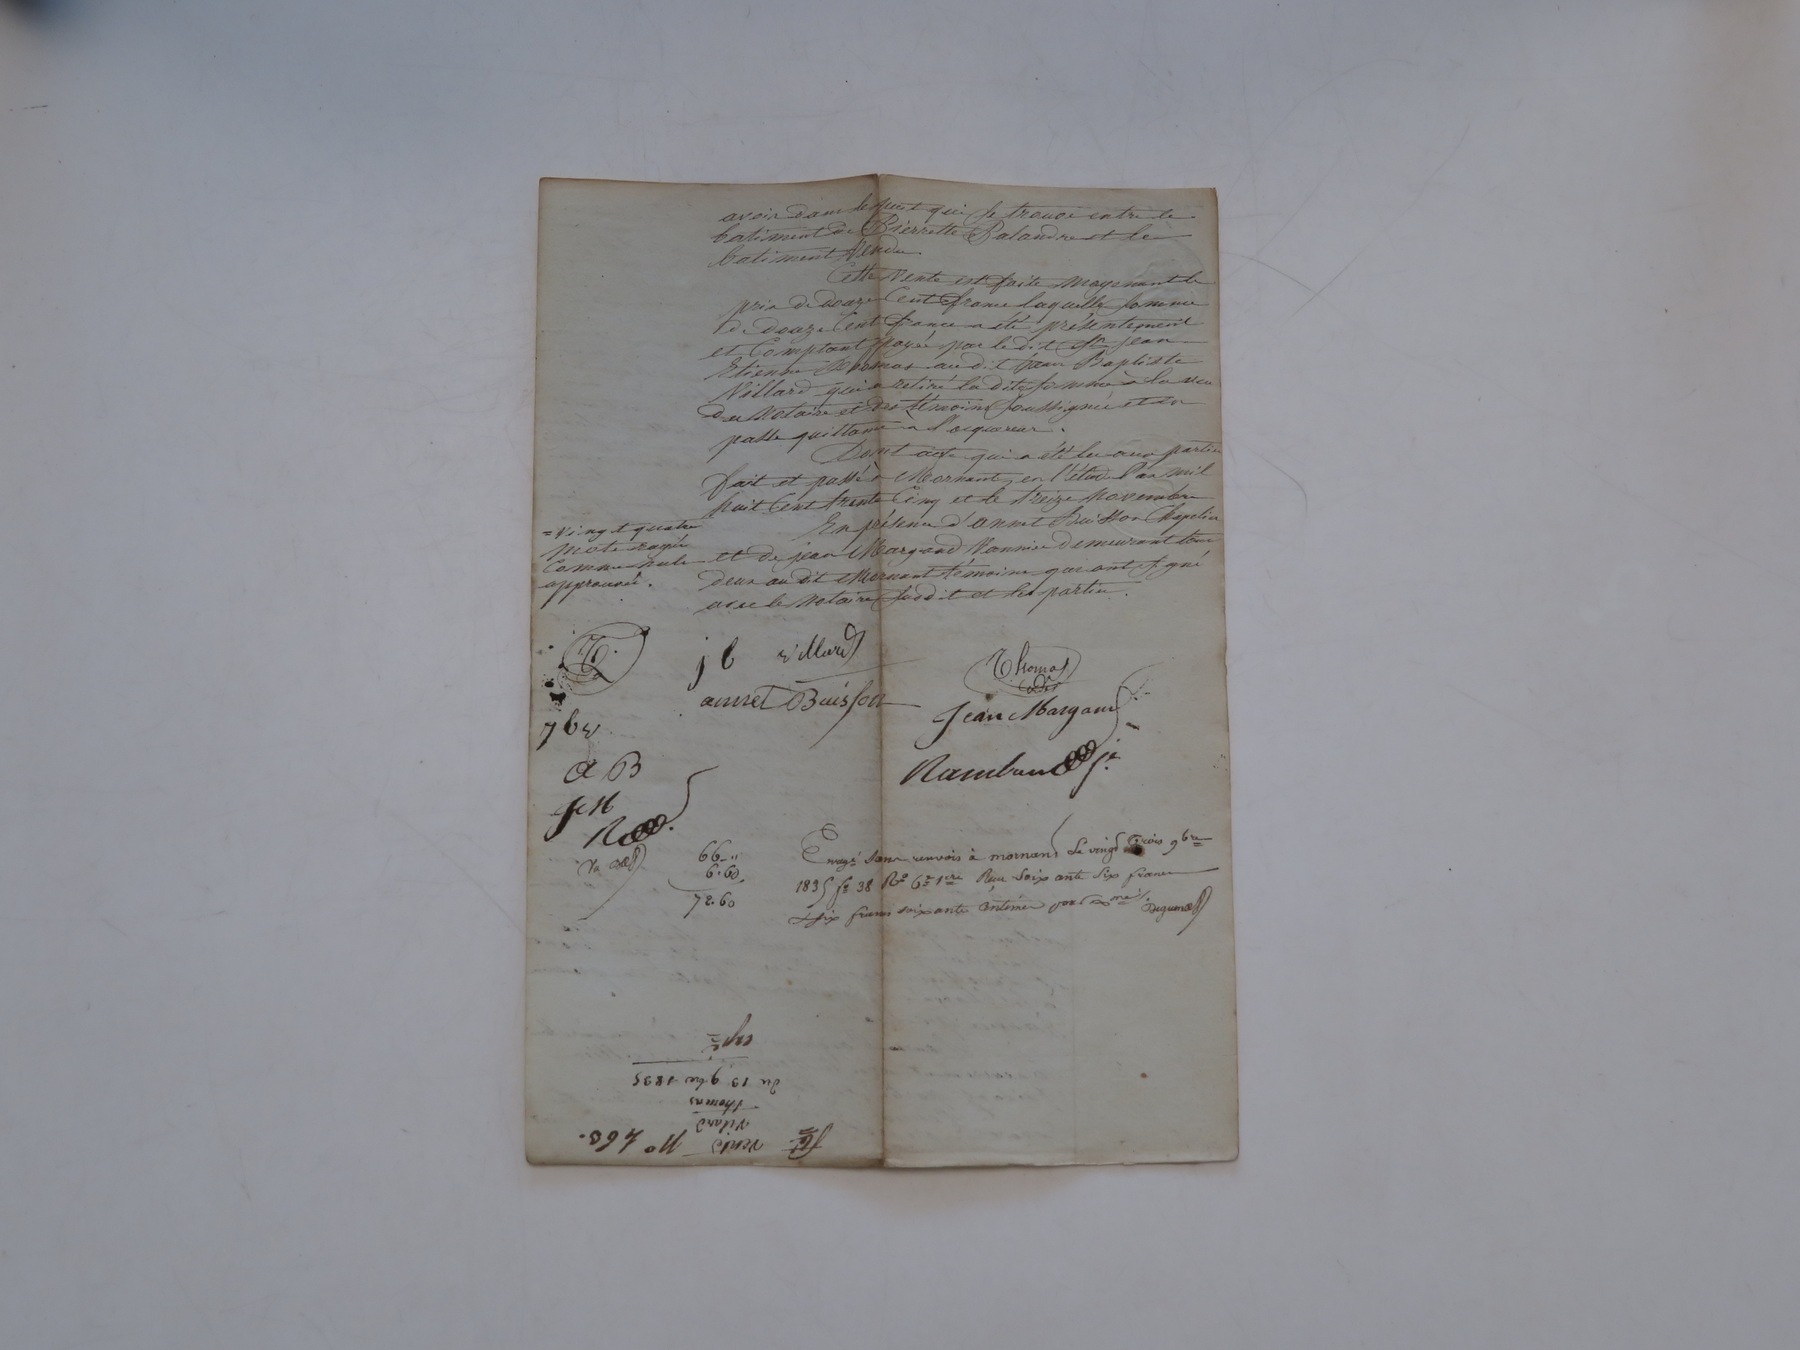 avoir dans le puit qui se trouve entre le
batiment de Pierrette Palandre et le
batiment vendu
Cette vente est faite moyenant le
prix de douze Cent francs laquelle somme
de douze Cent francs a été présentement
et Comptant payée par le dit Sr jean
Etienne Thomas au dit jean Baptiste
Villard qui a retiré la dite somme à la vue
du Notaire et des témoins soussignés et en
passe quittance a l'acquereur.
Dont acte qui a été lu aux parties
fait et passé à Mornant en l'étude l'an mil
huit Cent trente Cinq et le treize Novembre
En présence d'annet Buisson Chapelier
et de jean Margand Vannier demeurant tous
deux au dit Mornant témoins qui ont signé
avec le Notaire susdit et les parties.
= Vingt quatre
mots rayés
Comme nuls
approuvés.
j b villard
Thomas
annet Buisson
Jean Margand
j b v
a B
J M
66 "
6.60
72.60
Enregé sans renvois à mornant le vingt trois 9bre
1835 fo 38 Ro Ce 1re Reçu soixante six francs
& six francs soixante centimes pour Dme
No 463.
Vente
Vilard
Thomas
du 13 9bre 1835
expé